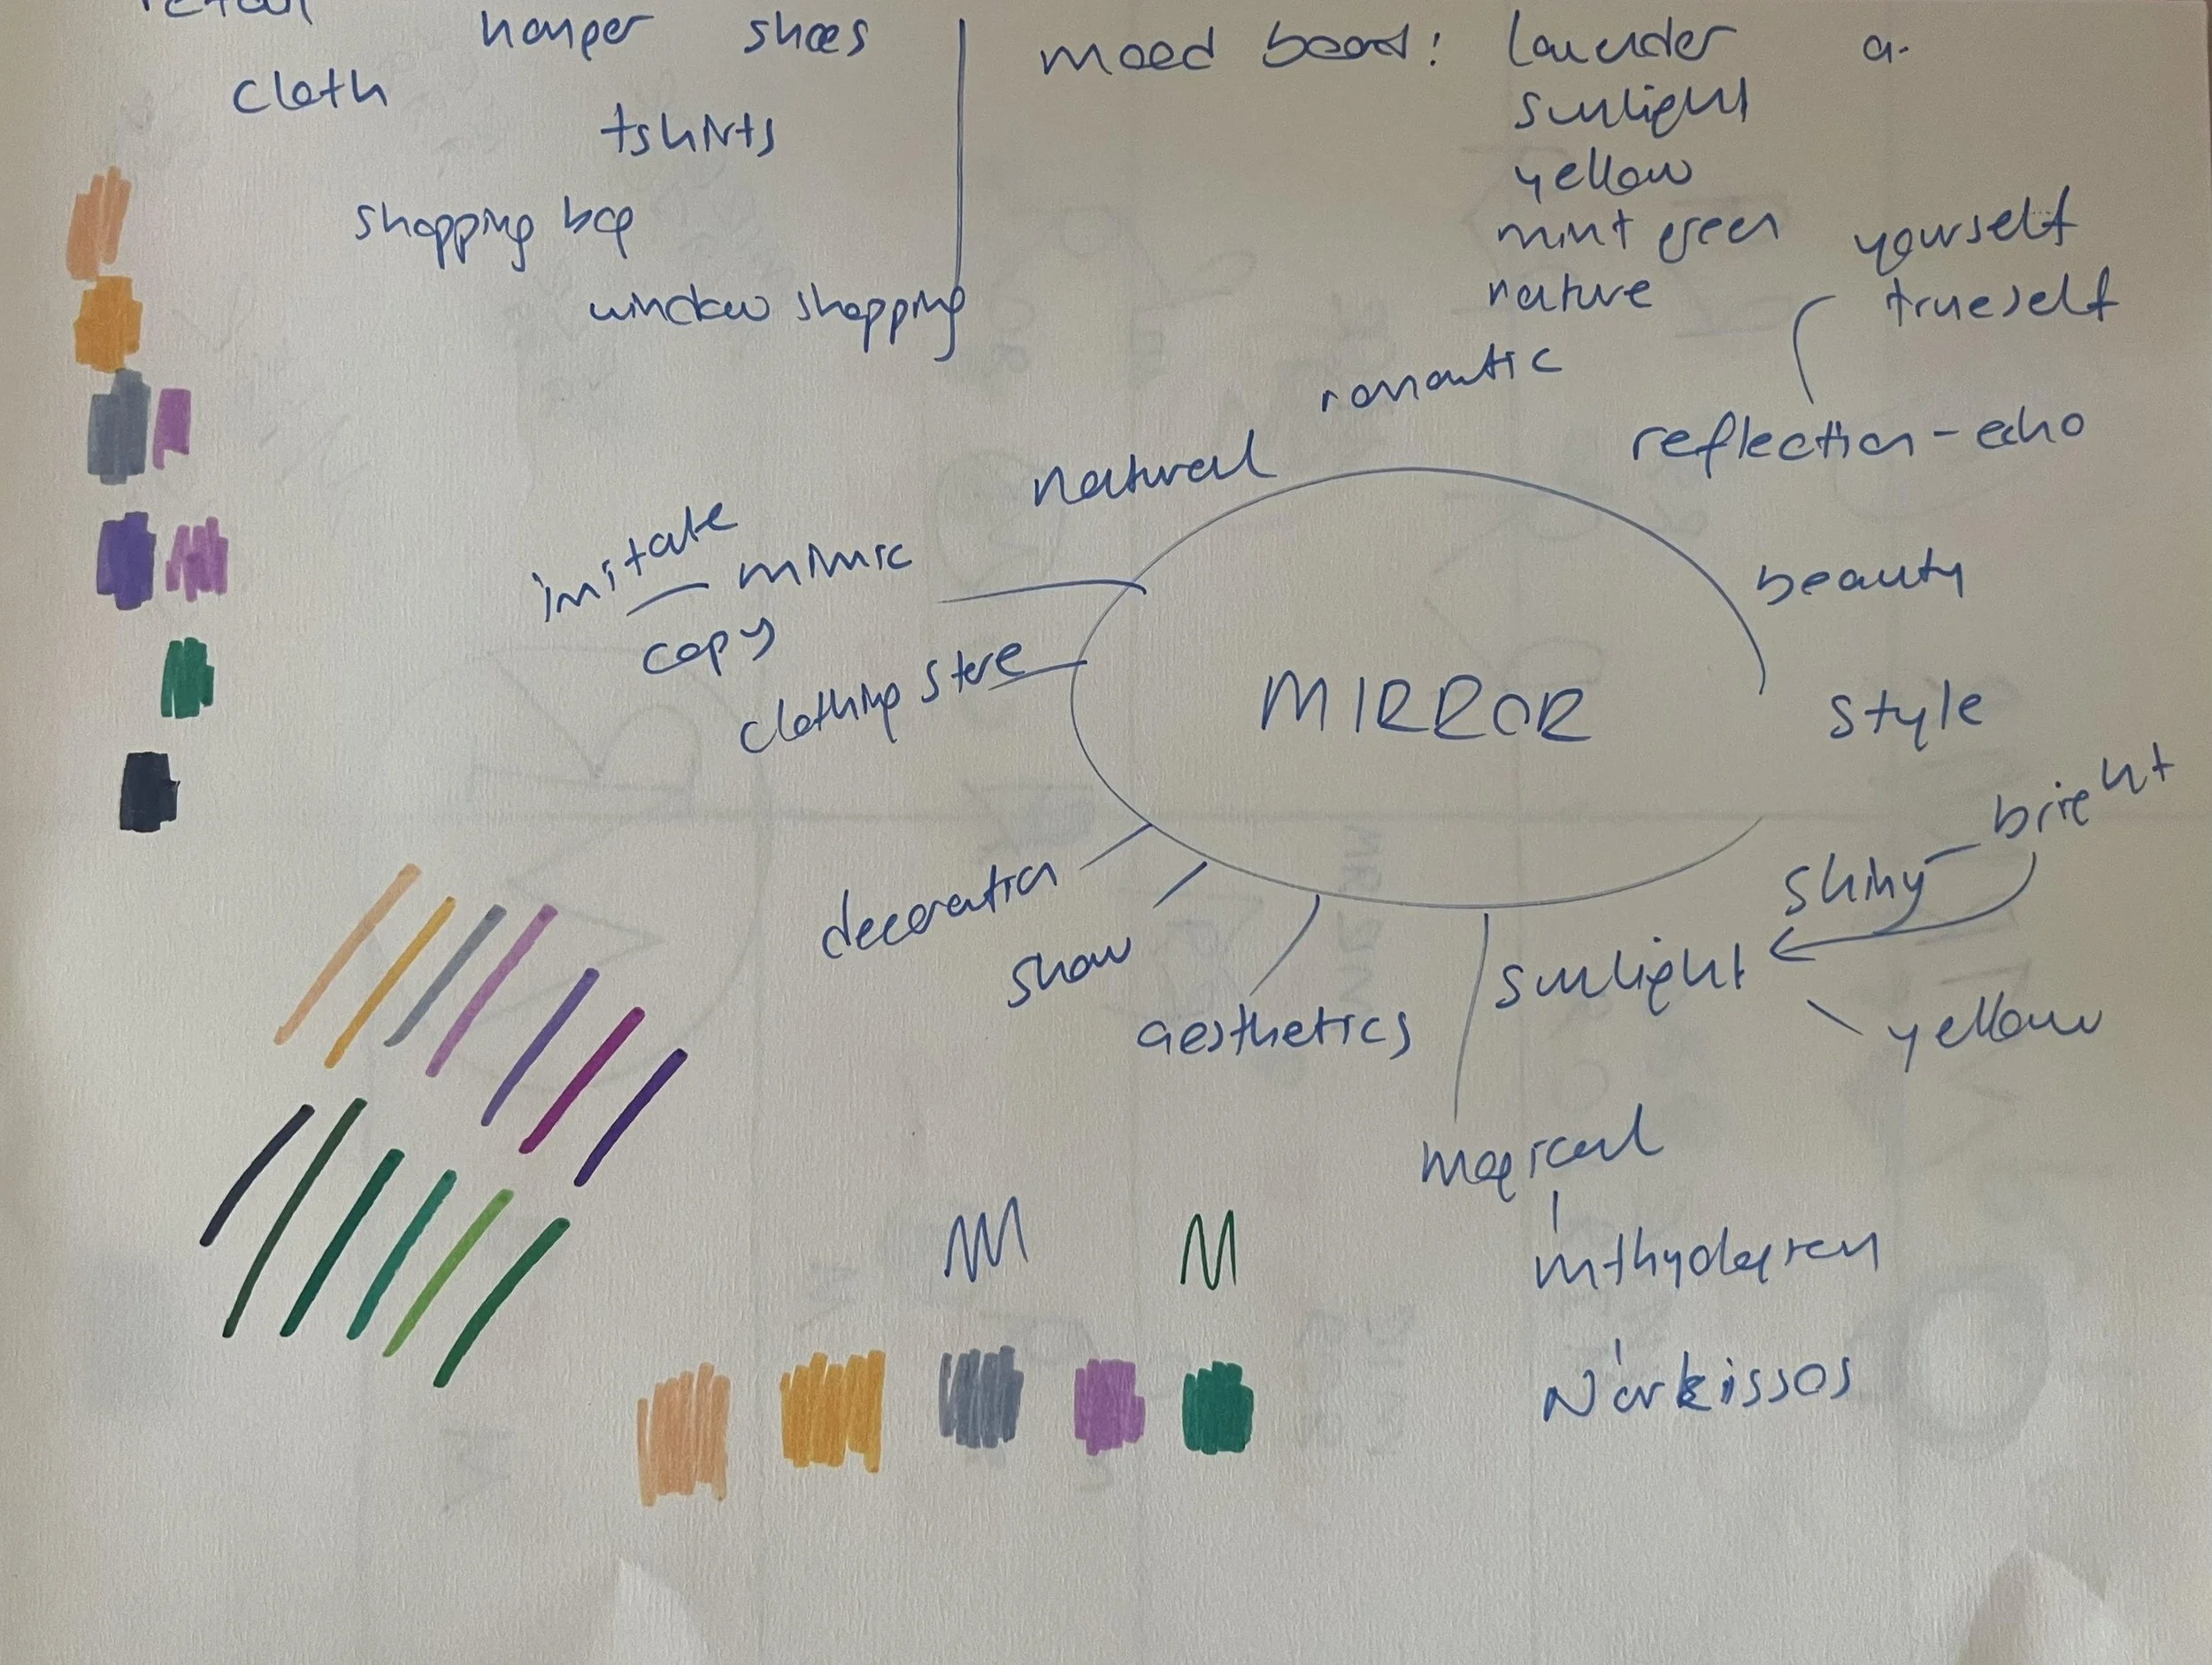 retail
hanger shoes
cloth
tshirts
shopping bag
window shopping
mood board: lavender
sunlight
yellow
mint green
nature
yourself
trueself
romantic
reflection - echo
natural
imitate
mimic
copy
beauty
clothing store
MIRROR
style
bright
shiny
decoration
show
sunlight
aesthetics
yellow
magical
Narkissos